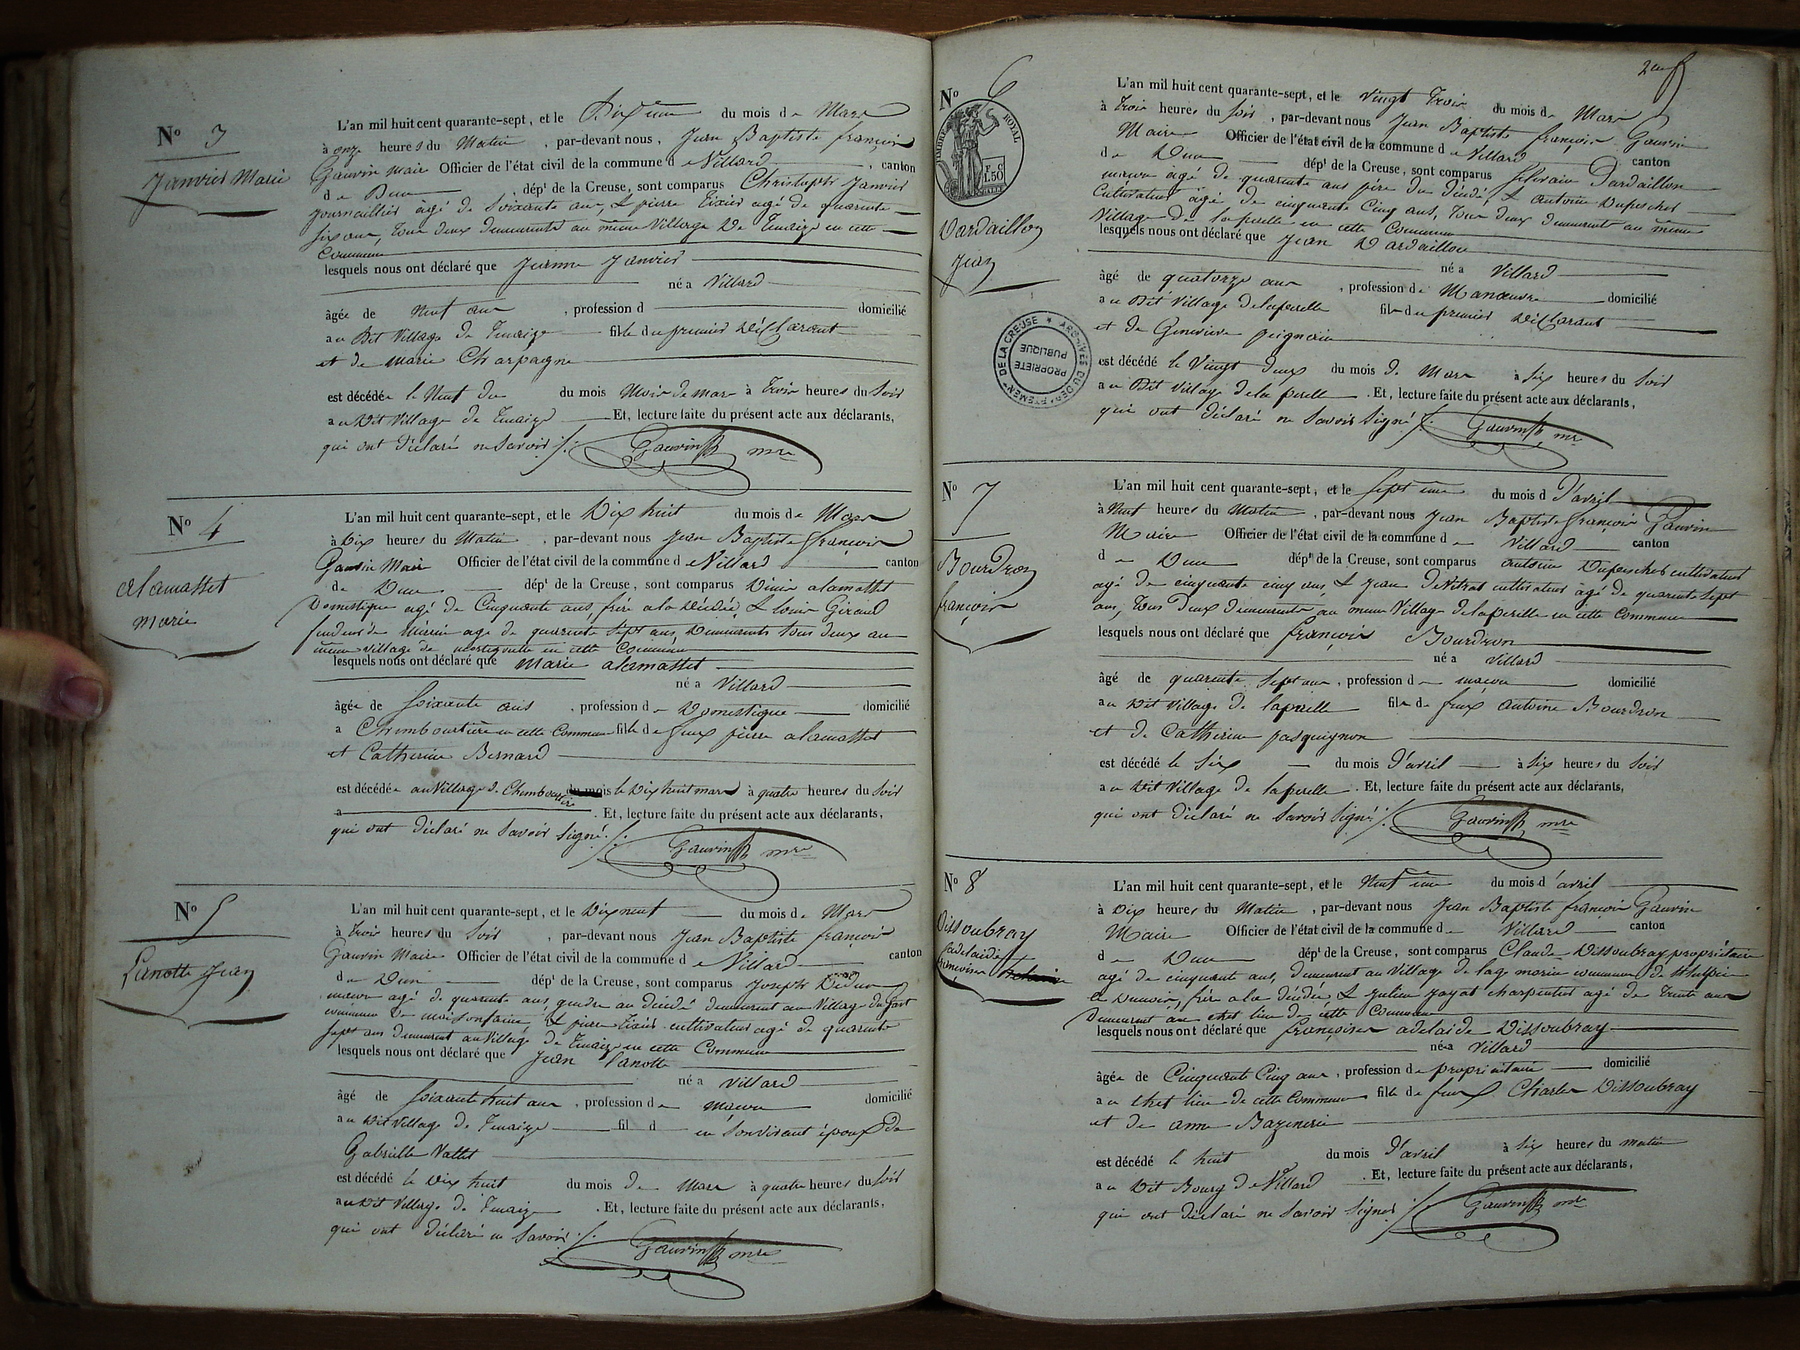 N° 3
Janvier Marie
L'an mil huit cent quarante-sept, et le Dixième du mois de Mars
à onze heures du Matin, par-devant nous, Jean Baptiste françois
Gauvin Maire Officier de l'état civil de la commune de Villard, canton
de Dun, dép.t de la Creuse, sont comparus Christophe Janvier
journaillier âgé de Soixante ans, & pierre Tixier agé de quarente
six ans, tous deux demeurents au même Village de en cette
Commune
lesquels nous ont déclaré que Jeanne Janvier
né a Villard
âgée de neuf ans, profession d domicilié
au Dit Village de fille du premier Déclarant
et de Marie Charpagne
est décédée le Neuf du du mois Mois de mars à Trois heures du Soir
au Dit Village de Et, lecture faite du présent acte aux déclarants,
qui ont déclaré ne Savoir ./.
Gauvin mre
N° 4
alamasset
marie
L'an mil huit cent quarante-sept, et le Dix huit du mois de Mars
à Dix heures du Matin, par-devant nous Jean Baptiste françois
Gauvin Maire Officier de l'état civil de la commune de Villard canton
de Dun dép.t de la Creuse, sont comparus alamasset
Domestique agé de Cinquante ans, frère a la Décédé, & louis Giraud
agé de quarente Sept ans, Demeurents tous deux au
même village de en cette Commune
lesquels nous ont déclaré que Marie alamasset
né a Villard
âgée de Soixante ans, profession de Domestique domicilié
a en cette Commune fille de feux pierre alamasset
et Catherine Bernard
est décédée au Village de du mois le Dix huit mars à quatre heures du Soir
a Et, lecture faite du présent acte aux déclarants,
qui ont déclaré ne Savoir Signé. ./.
Gauvin mre
N° 5
Lanotte Jean
L'an mil huit cent quarante-sept, et le Dixneuf du mois de Mars
à Trois heures du Soir, par-devant nous Jean Baptiste françois
Gauvin Maire Officier de l'état civil de la commune de Villard canton
de Dun dép.t de la Creuse, sont comparus Joseph
macon agé de quarente ans, gendre au décédé demeurent au Village du
commune de maisonfaine, & pierre Tixier cultivateur agé de quarente
sept ans demeurent au Village de en cette Commune
lesquels nous ont déclaré que Jean Lanotte
né a Villard
âgé de Soixante huit ans, profession de macon domicilié
au Dit Village de fil d en Son vivant époux de
Gabrielle Vallet
est décédé le Dix huit du mois de Mars à quatre heures du Soir
au Dit Village de Et, lecture faite du présent acte aux déclarants,
qui ont déclaré ne Savoir ./.
Gauvin mre
N° 6
TIMBRE ROYAL
Dardaillon
Jean
DE LA CREUSE * ARCHIVES DU DEPARTEMENT
PROPRIETE PUBLIQUE
L'an mil huit cent quarante-sept, et le Vingt Trois du mois de Mars
à Trois heures du Soir, par-devant nous Jean Baptiste françois Gauvin
Maire Officier de l'état civil de la commune de Villard canton
de Dun dép.t de la Creuse, sont comparus Silvain Dardaillon
macon agé de quarente ans père du décédé, & antoine Duperchet
Cultivateur agé de cinquante Cinq ans, Tous deux demeurents au même
Village de laperelle en cette Commune
lesquels nous ont déclaré que Jean Dardaillon
né a Villard
âgé de quatorze ans, profession de Manœuvre domicilié
au Dit Village de laperelle fils du premier Déclarant
et de Genevieve
est décédé le Vingt deux du mois de Mars à Six heures du Soir
au Dit Village de la perelle. Et, lecture faite du présent acte aux déclarants,
qui ont déclaré ne Savoir Signé ./.
Gauvin mre
N° 7
Bourdron
françois
L'an mil huit cent quarante-sept, et le Septième du mois d'avril
à Neuf heures du Matin, par-devant nous Jean Baptiste françois Gauvin
Maire Officier de l'état civil de la commune de Villard canton
de Dun dép.t de la Creuse, sont comparus antoine Duperchet cultivateur
agé de cinquante cinq ans, & Jean cultivateur âgé de quarente Sept
ans, Tous Deux demeurents au même Village de laperelle en cette Commune
lesquels nous ont déclaré que françois Bourdron
né a Villard
âgé de quarente Sept ans, profession de macon domicilié
au Dit Village de laperelle fils de feux antoine Bourdron
et de Catherine pasquignon
est décédé le Six du mois d'avril à Six heures du Soir
au Dit Village de laperelle. Et, lecture faite du présent acte aux déclarants,
qui ont déclaré ne Savoir Signé ./.
Gauvin mre
N° 8
Dissoubray
adelaide
françoise
L'an mil huit cent quarante-sept, et le Neuvième du mois d'avril
à Dix heures du Matin, par-devant nous Jean Baptiste françois Gauvin
Maire Officier de l'état civil de la commune de Villard canton
de Dun dép.t de la Creuse, sont comparus Claude Dissoubray propriétaire
agé de cinquante ans, demeurent au Village de commune de St Sulpice
le Dunois, frère a la décédée, & Julien Jayat charpentier agé de Trente ans
demeurent au chef lieu de cette Commune
lesquels nous ont déclaré que françoise adelaide Dissoubray
née a Villard
âgée de Cinquante Cinq ans, profession de propriétaire domicilié
au chef lieu de cette Commune fille de feux Charles Dissoubray
et de anne
est décédé le huit du mois d'avril à Six heures du matin
au Dit Bourg de Villard. Et, lecture faite du présent acte aux déclarants,
qui ont déclaré ne Savoir Signer ./.
Gauvin mre